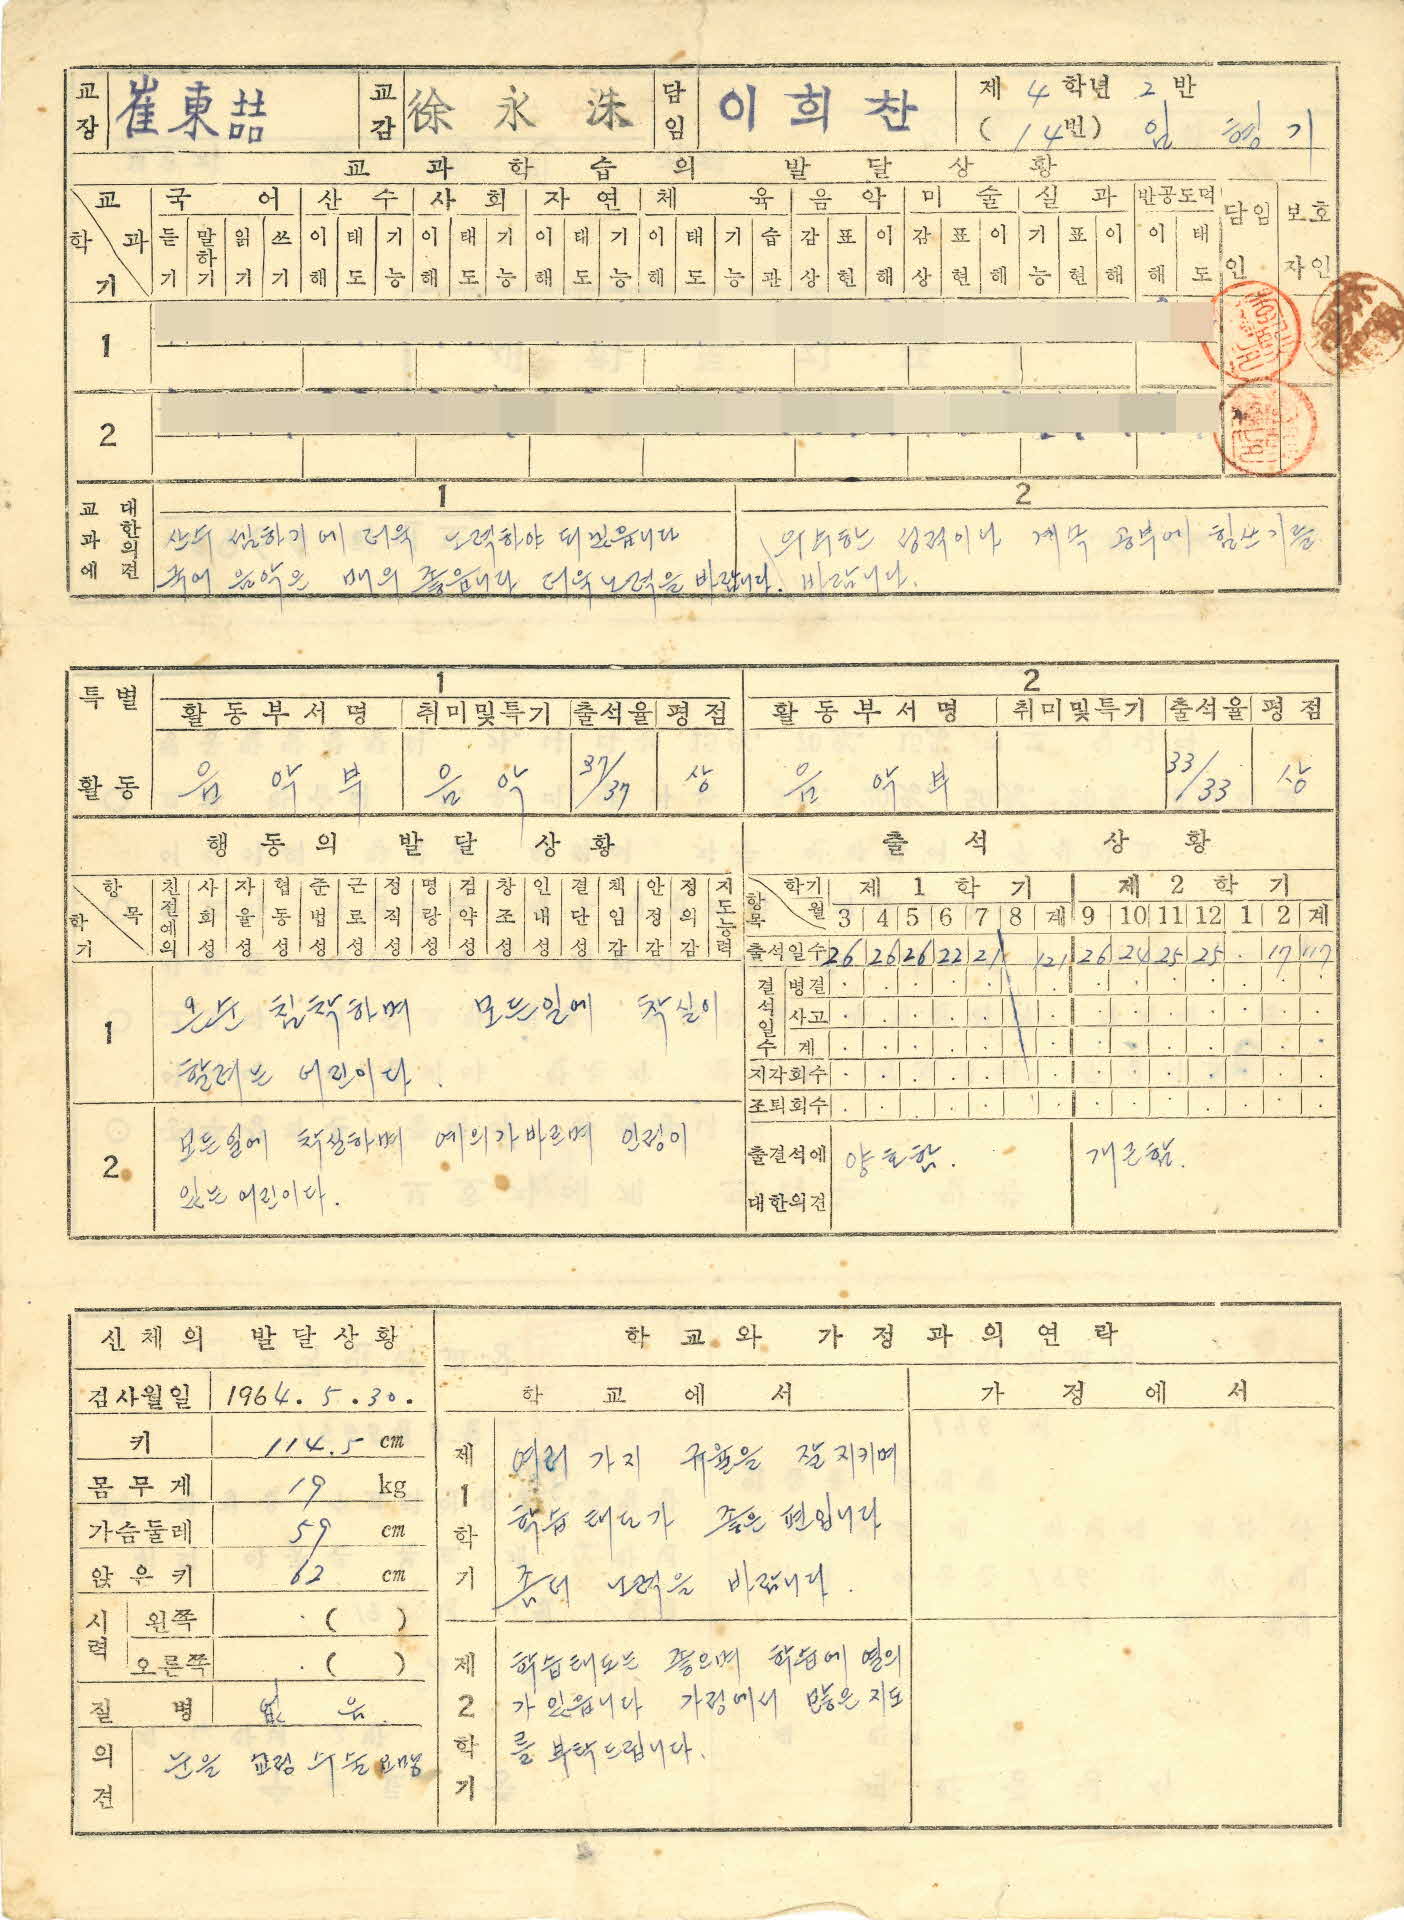 교장 崔東喆 교감 徐永洙 담임 이희찬 제 4 학년 2 반
(14번) 임형기
교과학습의 발달상황
교과 학기 국어 산수 사회 자연 체육 음악 미술 실과 반공도덕 담임인 보호자인
듣기 말하기 읽기 쓰기 이해 태도 기능 이해 태도 기능 이해 태도 기능 이해 태도 기능 습관 감상 표현 이해 감상 표현 이해 기능 표현 이해 이해 태도
1
2
교과에 대한의견
1
산수 셈하기에 더욱 노력하야 되겠읍니다
국어 음악은 매의 좋읍니다 더욱 노력을 바랍니다.
2
우수한 성적이나 계속 공부에 힘쓰기를
바랍니다.
특별활동
1 2
활동부서명 취미및특기 출석율 평점 활동부서명 취미및특기 출석율 평점
음악부 음악 37/37 상 음악부 33/33 상
행동의 발달상황
항목 학기 친절예의 사회성 자율성 협동성 준법성 근로성 정직성 명랑성 검약성 창조성 인내성 결단성 책임감 안정감 정의감 지도능력
1
온순 침착하며 모든일에 착실이
할려는 어린이다.
2
모든일에 착실하며 예의가바르며 인정이
있는 어린이다.
출석상황
학기 월 항목 제1학기 제2학기
3 4 5 6 7 8 계 9 10 11 12 1 2 계
출석일수 26 26 26 22 21 121 26 24 25 25 . 17 117
결석일수 병결
사고
계
지각회수
조퇴회수
출결석에 대한의견 양호함. 개근함.
신체의 발달상황
검사월일 1964. 5. 30.
키 114.5 cm
몸무게 19 kg
가슴둘레 59 cm
앉은키 62 cm
시력 왼쪽 . ( )
오른쪽 . ( )
질병 없음
의견 눈을 교정 수술 요망
학교와 가정과의 연락
학교에서 가정에서
제1학기
여러가지 규율을 잘 지키며
학습태도가 좋은 편입니다
좀더 노력을 바랍니다.
제2학기
학습태도는 좋으며 학습에 열의
가 있읍니다 가정에서 많은 지도
를 부탁드립니다.